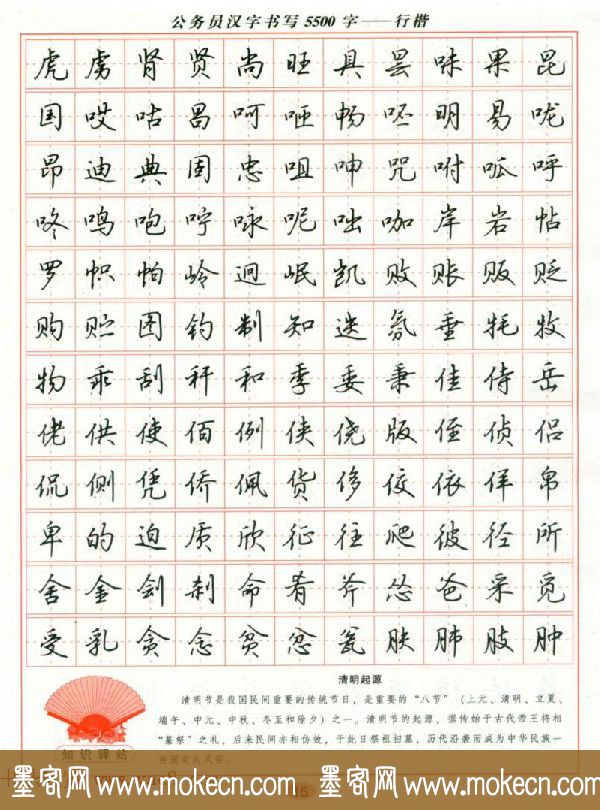 公务员汉字书写5500字——行楷
虎虏肾贤尚旺具昙味果昆
国哎咕昌呵咂畅呸明易咙
昂迪典固忠咀呻咒咐呱呼
咚鸣咆咛咏呢咄咖岸岩帖
罗帜帕岭迥岷凯败账贩贬
购贮图钓制知迭氛垂牦牧
物乖刮秆和季委秉佳侍岳
佬供使佰例侠侥版侄侦侣
侃侧凭侨佩货侈佼依佯帛
卑的迫质欣征往爬彼径所
舍金刽刹命肴斧怂爸采觅
受乳贪念贫忿瓮肤肺肢肿
清明起源
清明节是我国民间重要的传统节日，是重要的“八节”（上元、清明、立夏、
端午、中元、中秋、冬至和除夕）之一。清明节的起源，据传始于古代帝王将相
“墓祭”之礼，后来民间亦相仿效，于此日祭祖扫墓，历代沿袭而成为中华民族一
种固定的风俗。
知识驿站
15
墨客网 www.mokecn.com 墨客网 www.mokecn.com